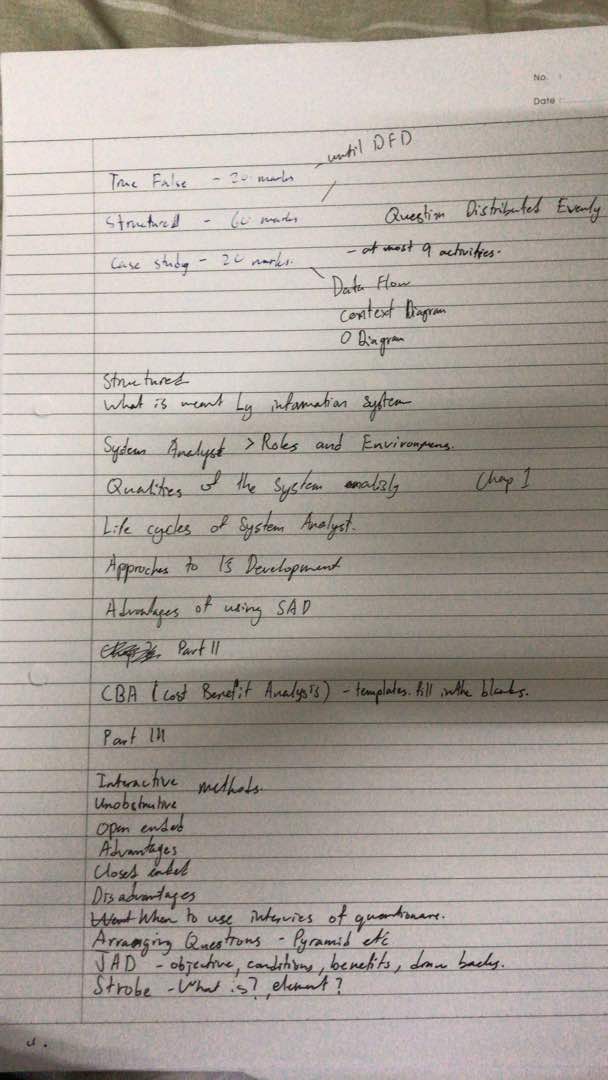 No.
Date
until DFD
True False - 20 marks
Structured - 60 marks
Question Distributed Evenly
Case study - 20 marks.
- at most 9 activities.
Data Flow
context Diagram
0 Diagram
Structured
What is meant by information system
System Analyst > Roles and
Qualities of the System
Chap 1
Life cycles of System Analyst.
Approches to IS Development
Advantages of using SAD
Part II
CBA (Cost Benefit Analysis) - templates. fill in the blanks.
Part III
Interactive methods.
Unobstrutive
Open ended
Advantages
Closed ended
Disadvantages
When to use of
Arranging Questions - Pyramid etc
JAD - objective, conditions, benefits, draw backs.
Strobe - What is?, element?